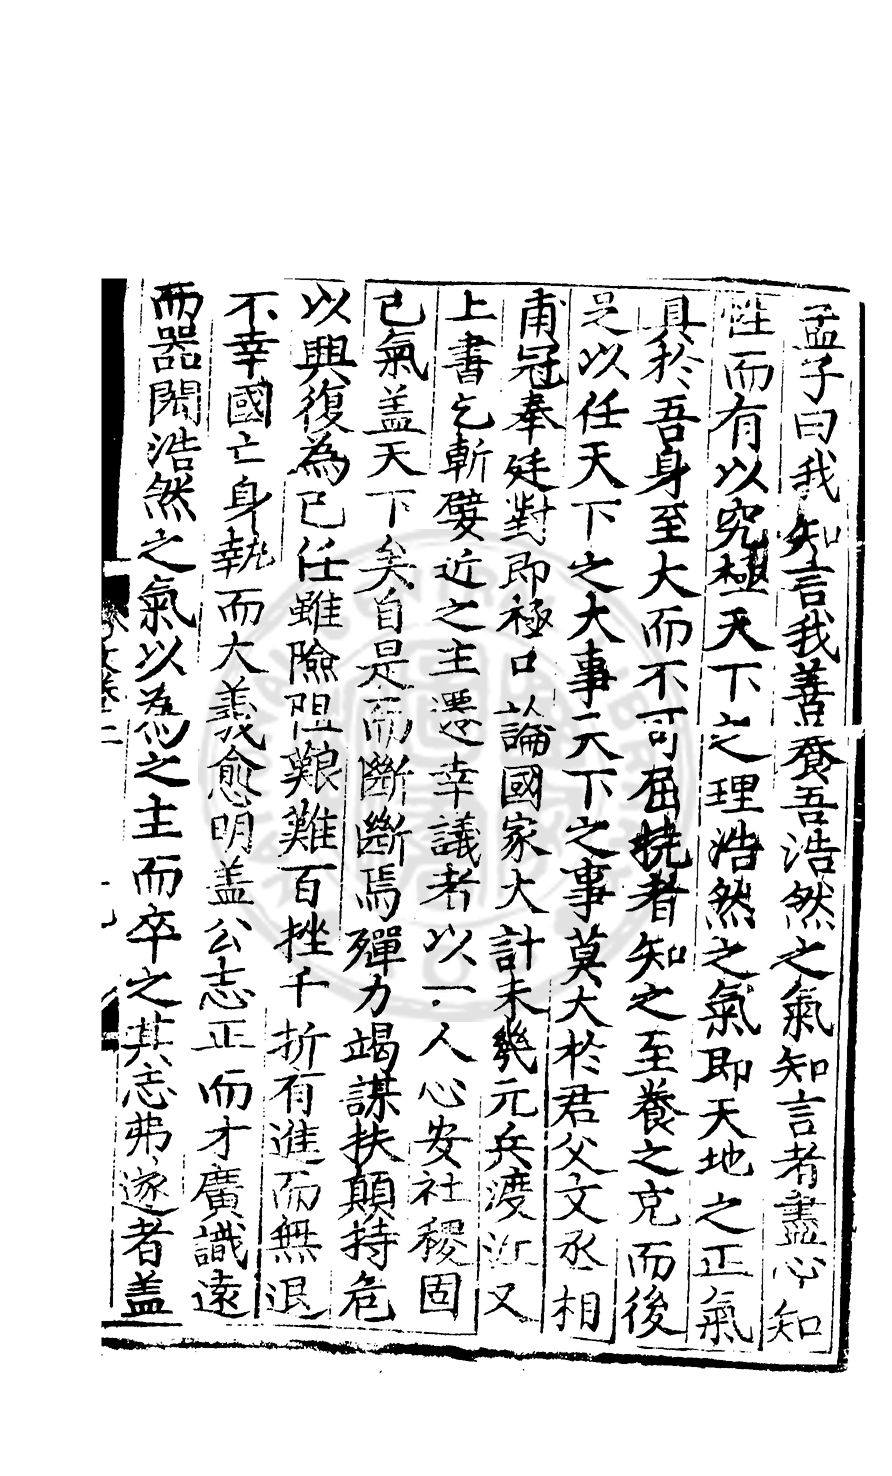 孟子曰我知言我善養吾浩然之氣知言者盡心知
性而有以究極天下之理浩然之氣即天地之正氣
具於吾身至大而不可屈撓者知之至養之克而後
足以任天下之大事天下之事莫大於君父文丞相
甫冠奉廷對即極口論國家大計未幾元兵渡江又
上書乞斬嬖近之主遷幸議者以一人心安社稷固
已氣盖天下矣自是而斷斷焉殫力竭謀扶顛持危
以興復為已任雖險阻艱難百挫千折有進而無退
不幸國亡身執而大義愈明盖公志正而才廣識遠
而器閎浩然之氣以為之主而卒之其志弗遂者盖
文卷二